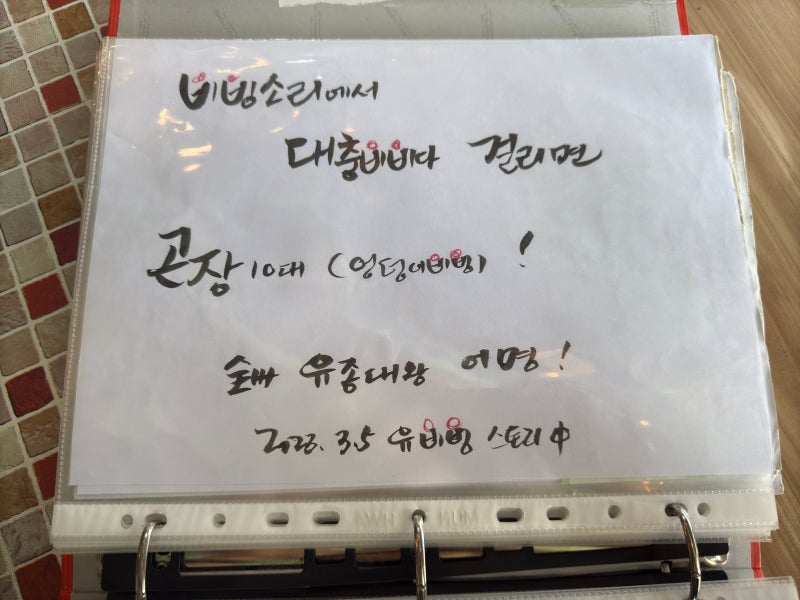 비빔소리에서
대충비비다 걸리면
곤장 10대 (엉덩이비빔)!
숟빠 유종대왕 어명!
2023. 3. 5 유비빔 스토리 中